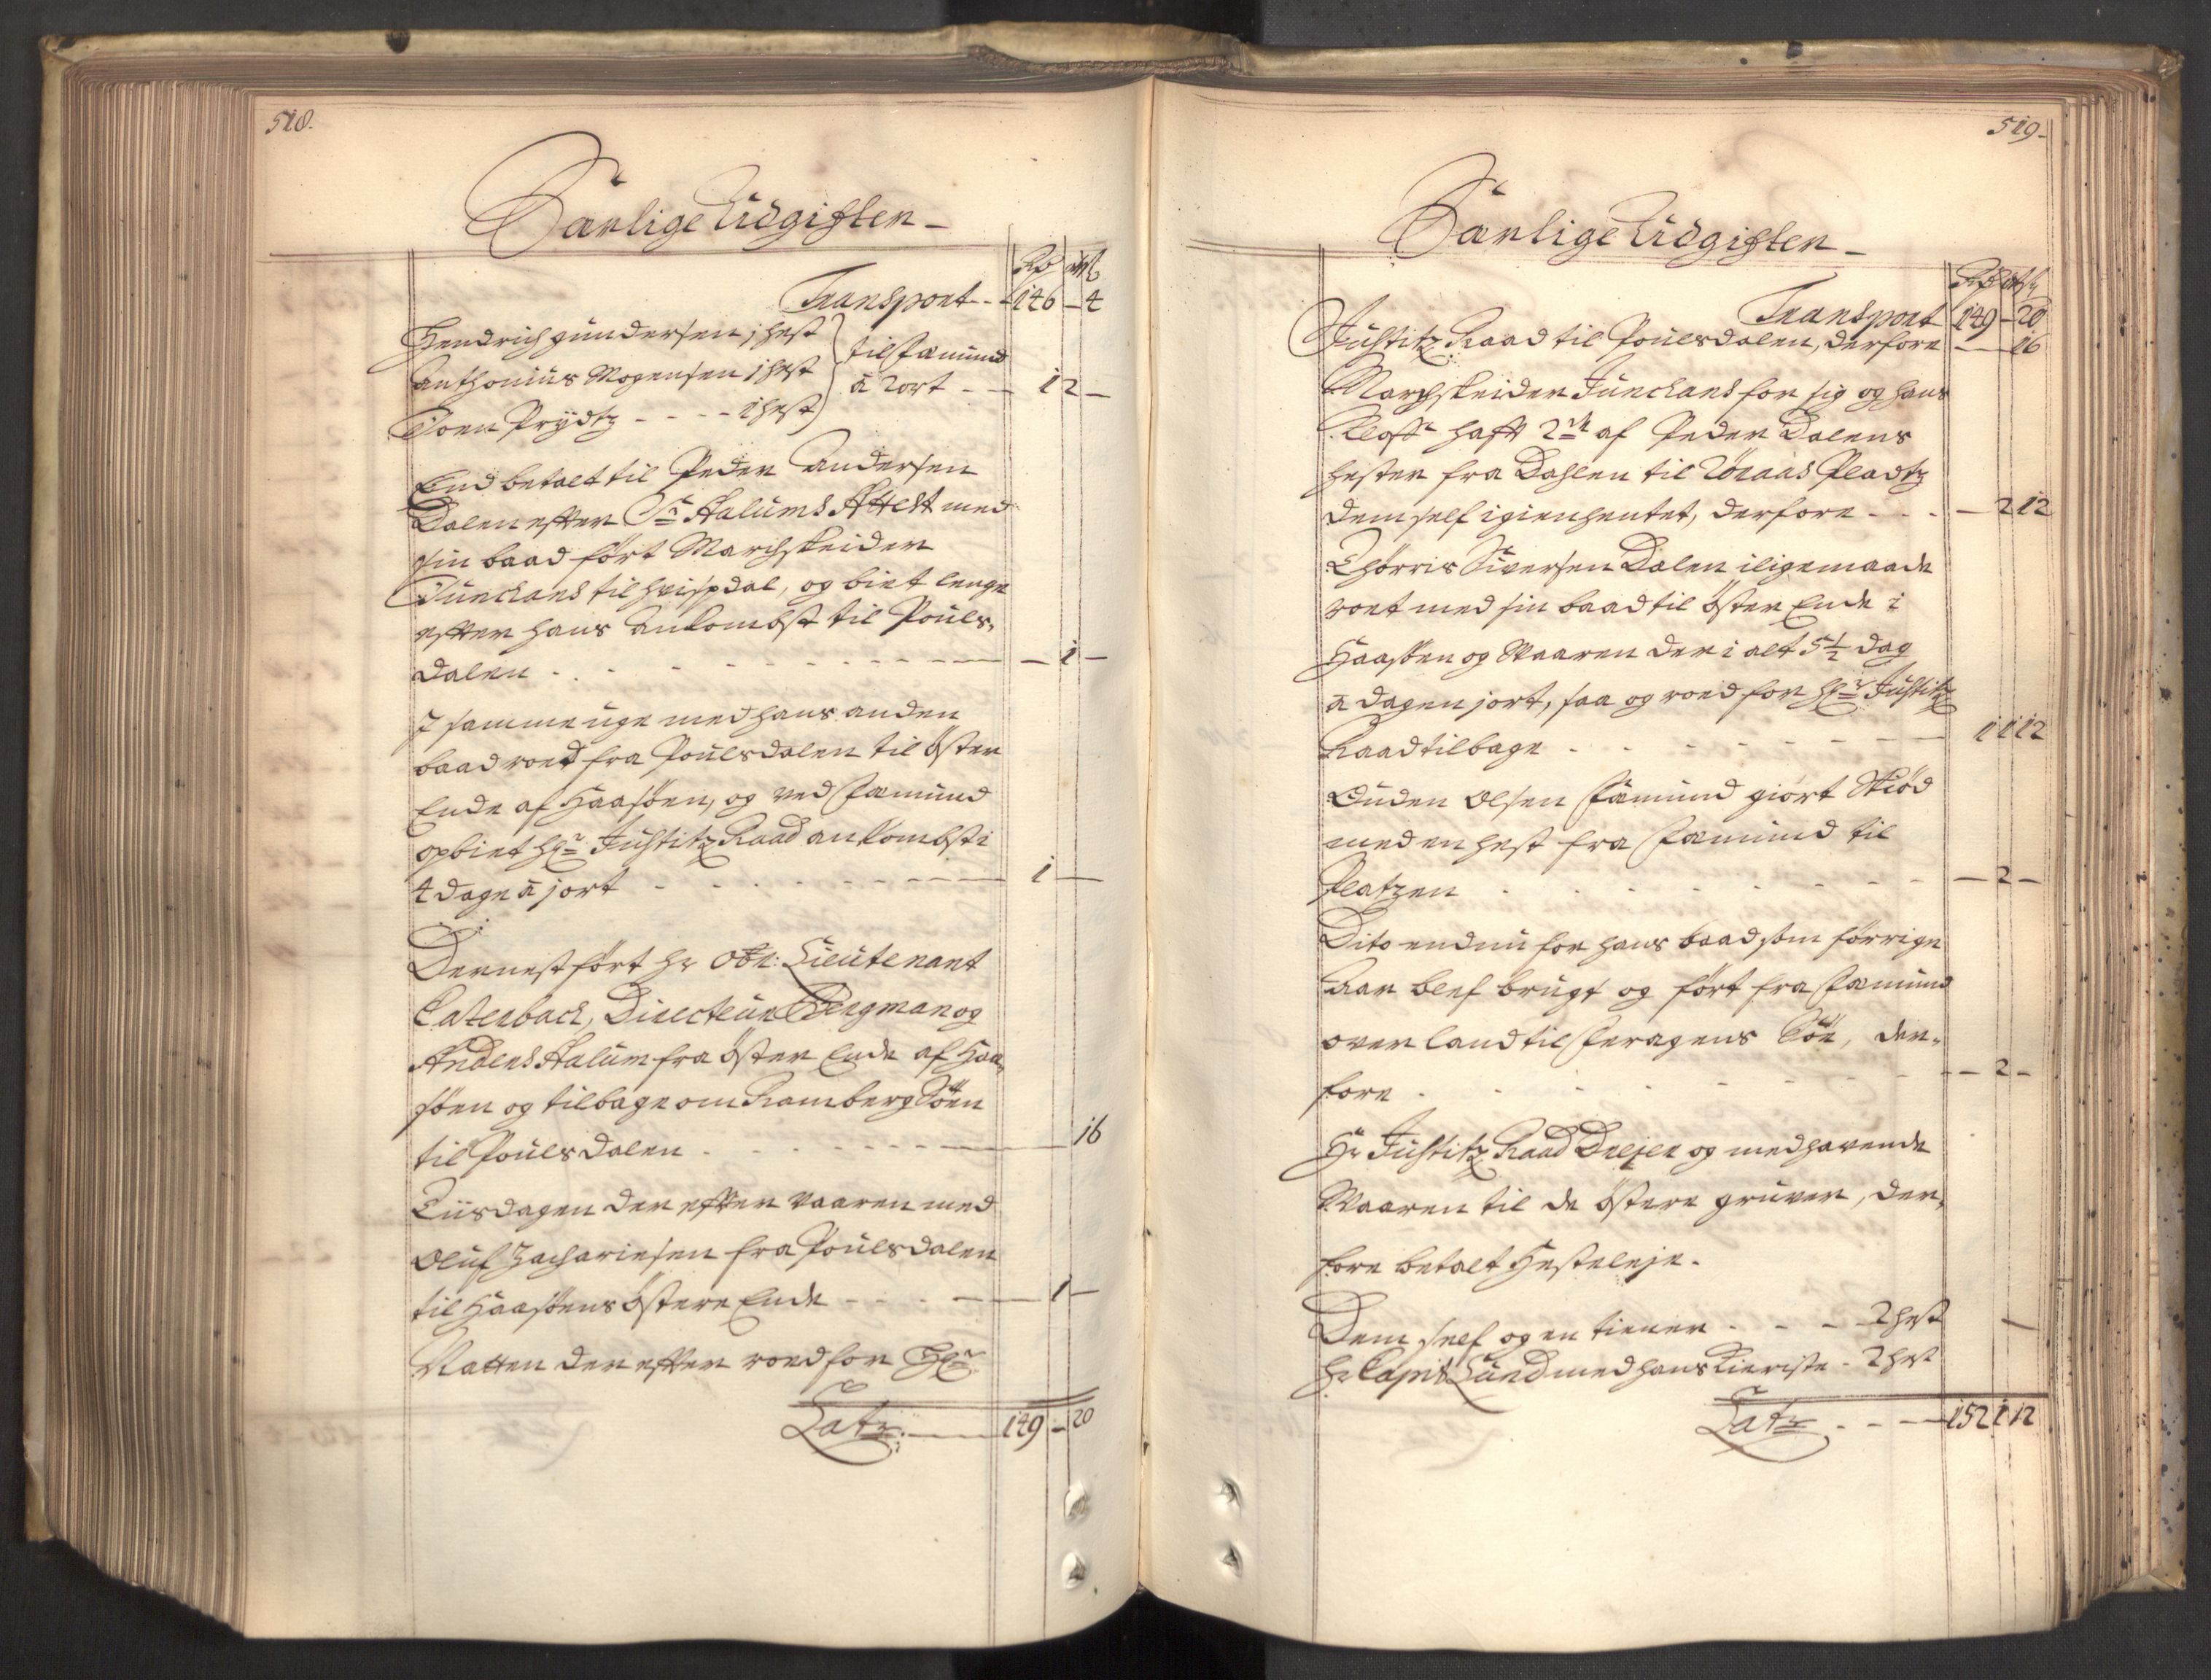 518.
Særlige Udgifter
Rd
Transport - 146 - 4
Hendrich gundersen 1 hest
til Fæmund
Anthonius Mogensen 1 hest
à 2 ort - 1 2 -
Joen Prydtz - - - - 1 hest
End betalt til Peder Andersen
Dalen efter Sr Aalums Attest med
sin baad ført Marchskeider
Junchans til hvispdal, og biet lenge
efter hans Ankombst til Pouls-
dalen - - - 1 -
I samme uge med hans anden
baad roed fra Poulsdalen til öster
Ende af Haasöen, og ved Fæmund
opbiet Hr Justitz Raad ankombst i
4 dage à 1 ort - - - 1
Dernest ført hr Obr: Lieutenant
Directeur Bergman og
Anders Aalum fra öster Ende af Haa-
söen og tilbage om Ramberg Söen
til Poulsdalen - - - 16
Tiisdagen der efter vaaren med
Oluf Zachariesen fra Poulsdalen
til Haasöens östere Ende - - - 1 -
Natten der efter roed for Hr
Latr - 149 - 20
519.
Særlige Udgifter
Rd
Transport 149 - 20
Justitz Raad til Poulsdalen, derfore - 16
Marchskeider Junchans for sig og hans
haft 2 st af Peder Dalens
hester fra Dahlen til Röraas Pladtz
dem self igien hentet, derfore - - - 2 12
Thörris Siversen Dalen iligemaade
roet med sin baad til öster Ende i
Haasöen og Waaren der i alt 5 1/2 dag
à dagen 1 ort, saa og roed for Hr Justitz
Raad tilbage - - - 1 1 12
Guden Olsen Fæmund giört Skiöd
med en hest fra Fæmund til
Platzen - - - 2 -
Dito endnu for hans baad som förrige
Aar blef brugt og ført fra Fæmund
over land til Feragens Söe, der-
fore - - - 2 -
Hr Justitz Raad Dreyer og medhavende
Waaren til de östere gruver, der-
fore betalt Hesteleje.
Dem self og en tiener - - - 2 hest
Hr Capit Lund med hans Kieriste - 2 hest
Latr - - - 152 1 12